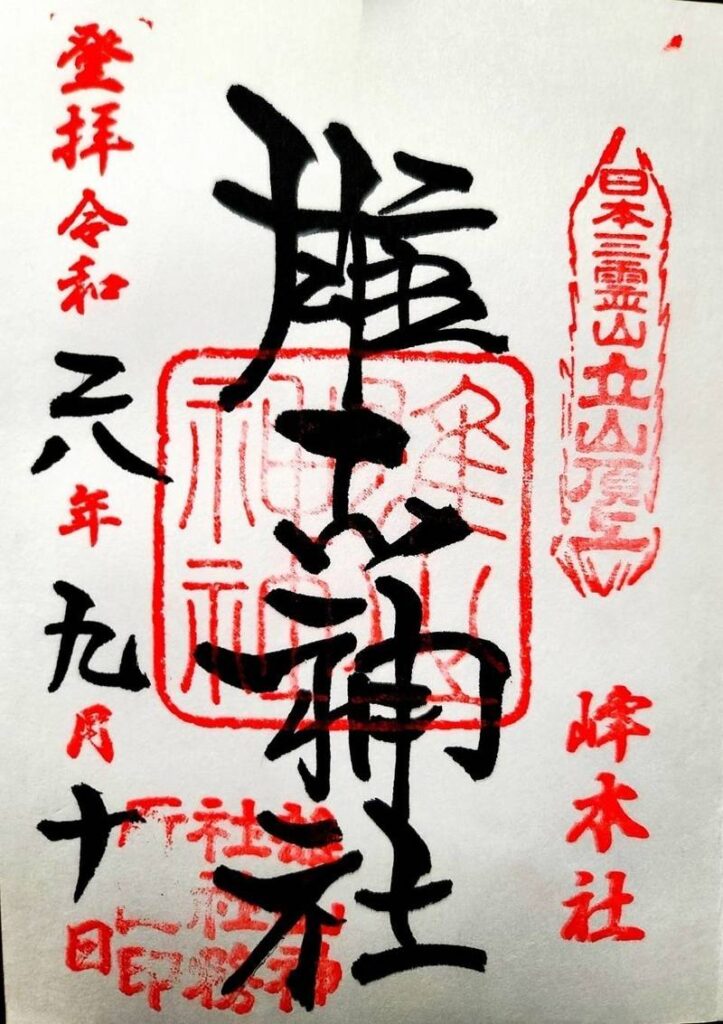 日本三霊山立山頂上
峰本社
雄山神社
雄山神社
雄山神社社務所之印
登拝令和六年九月十日